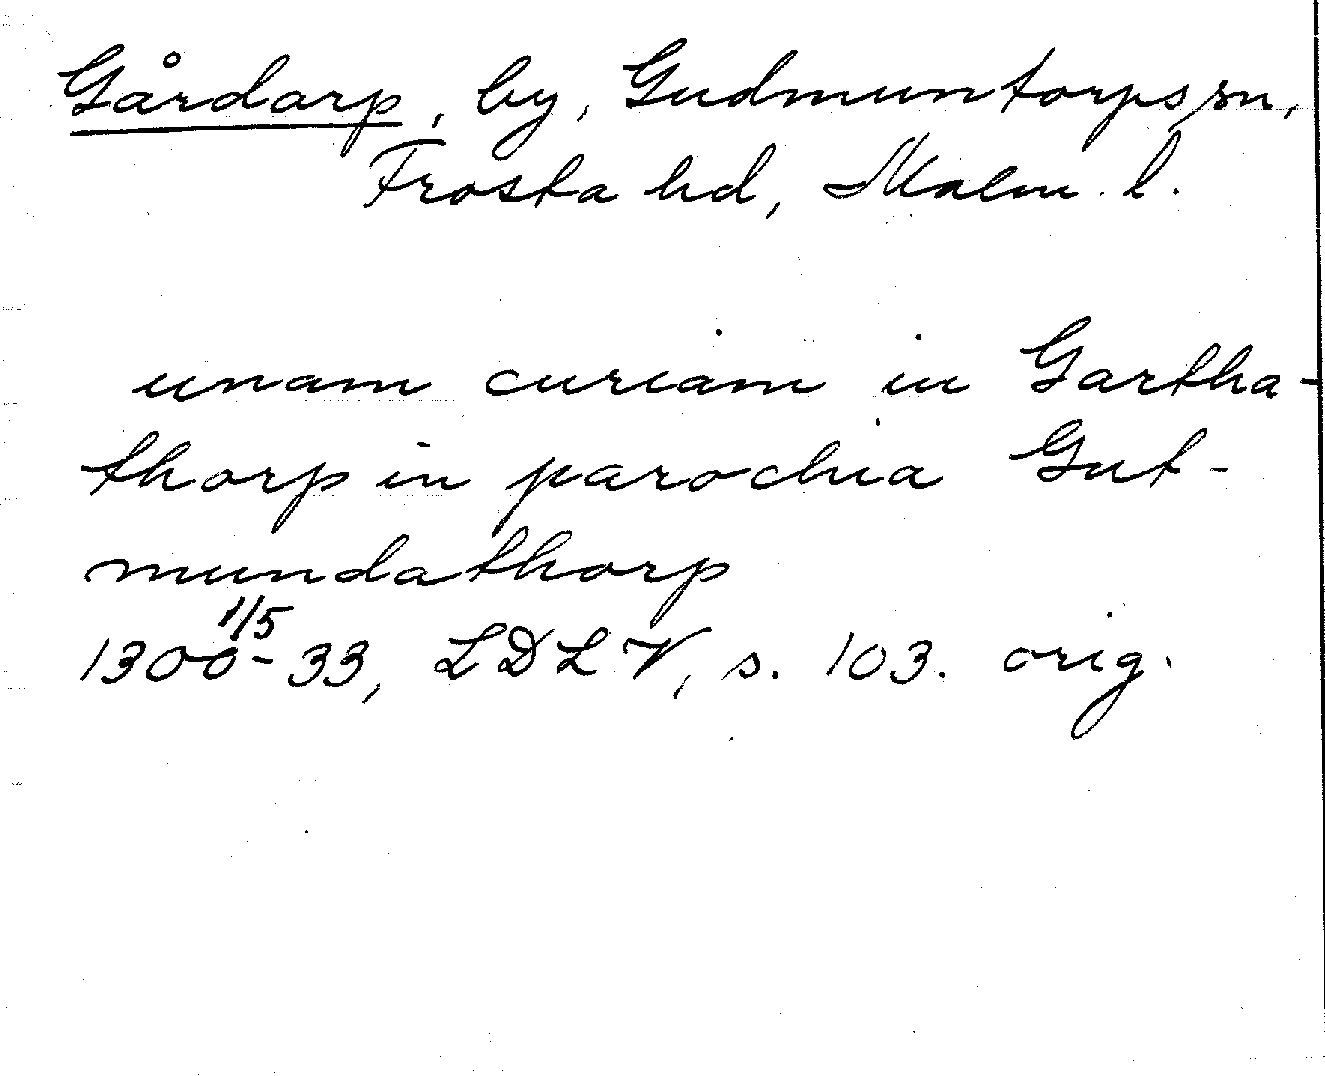 Gårdarp, by, Gudmuntorps sn,
Frosta hd, Malm. l.
unam curiam in Gartha-
thorp in parochia Gut-
mundathorp
1/5
1300-33, LDLV, s. 103. orig.